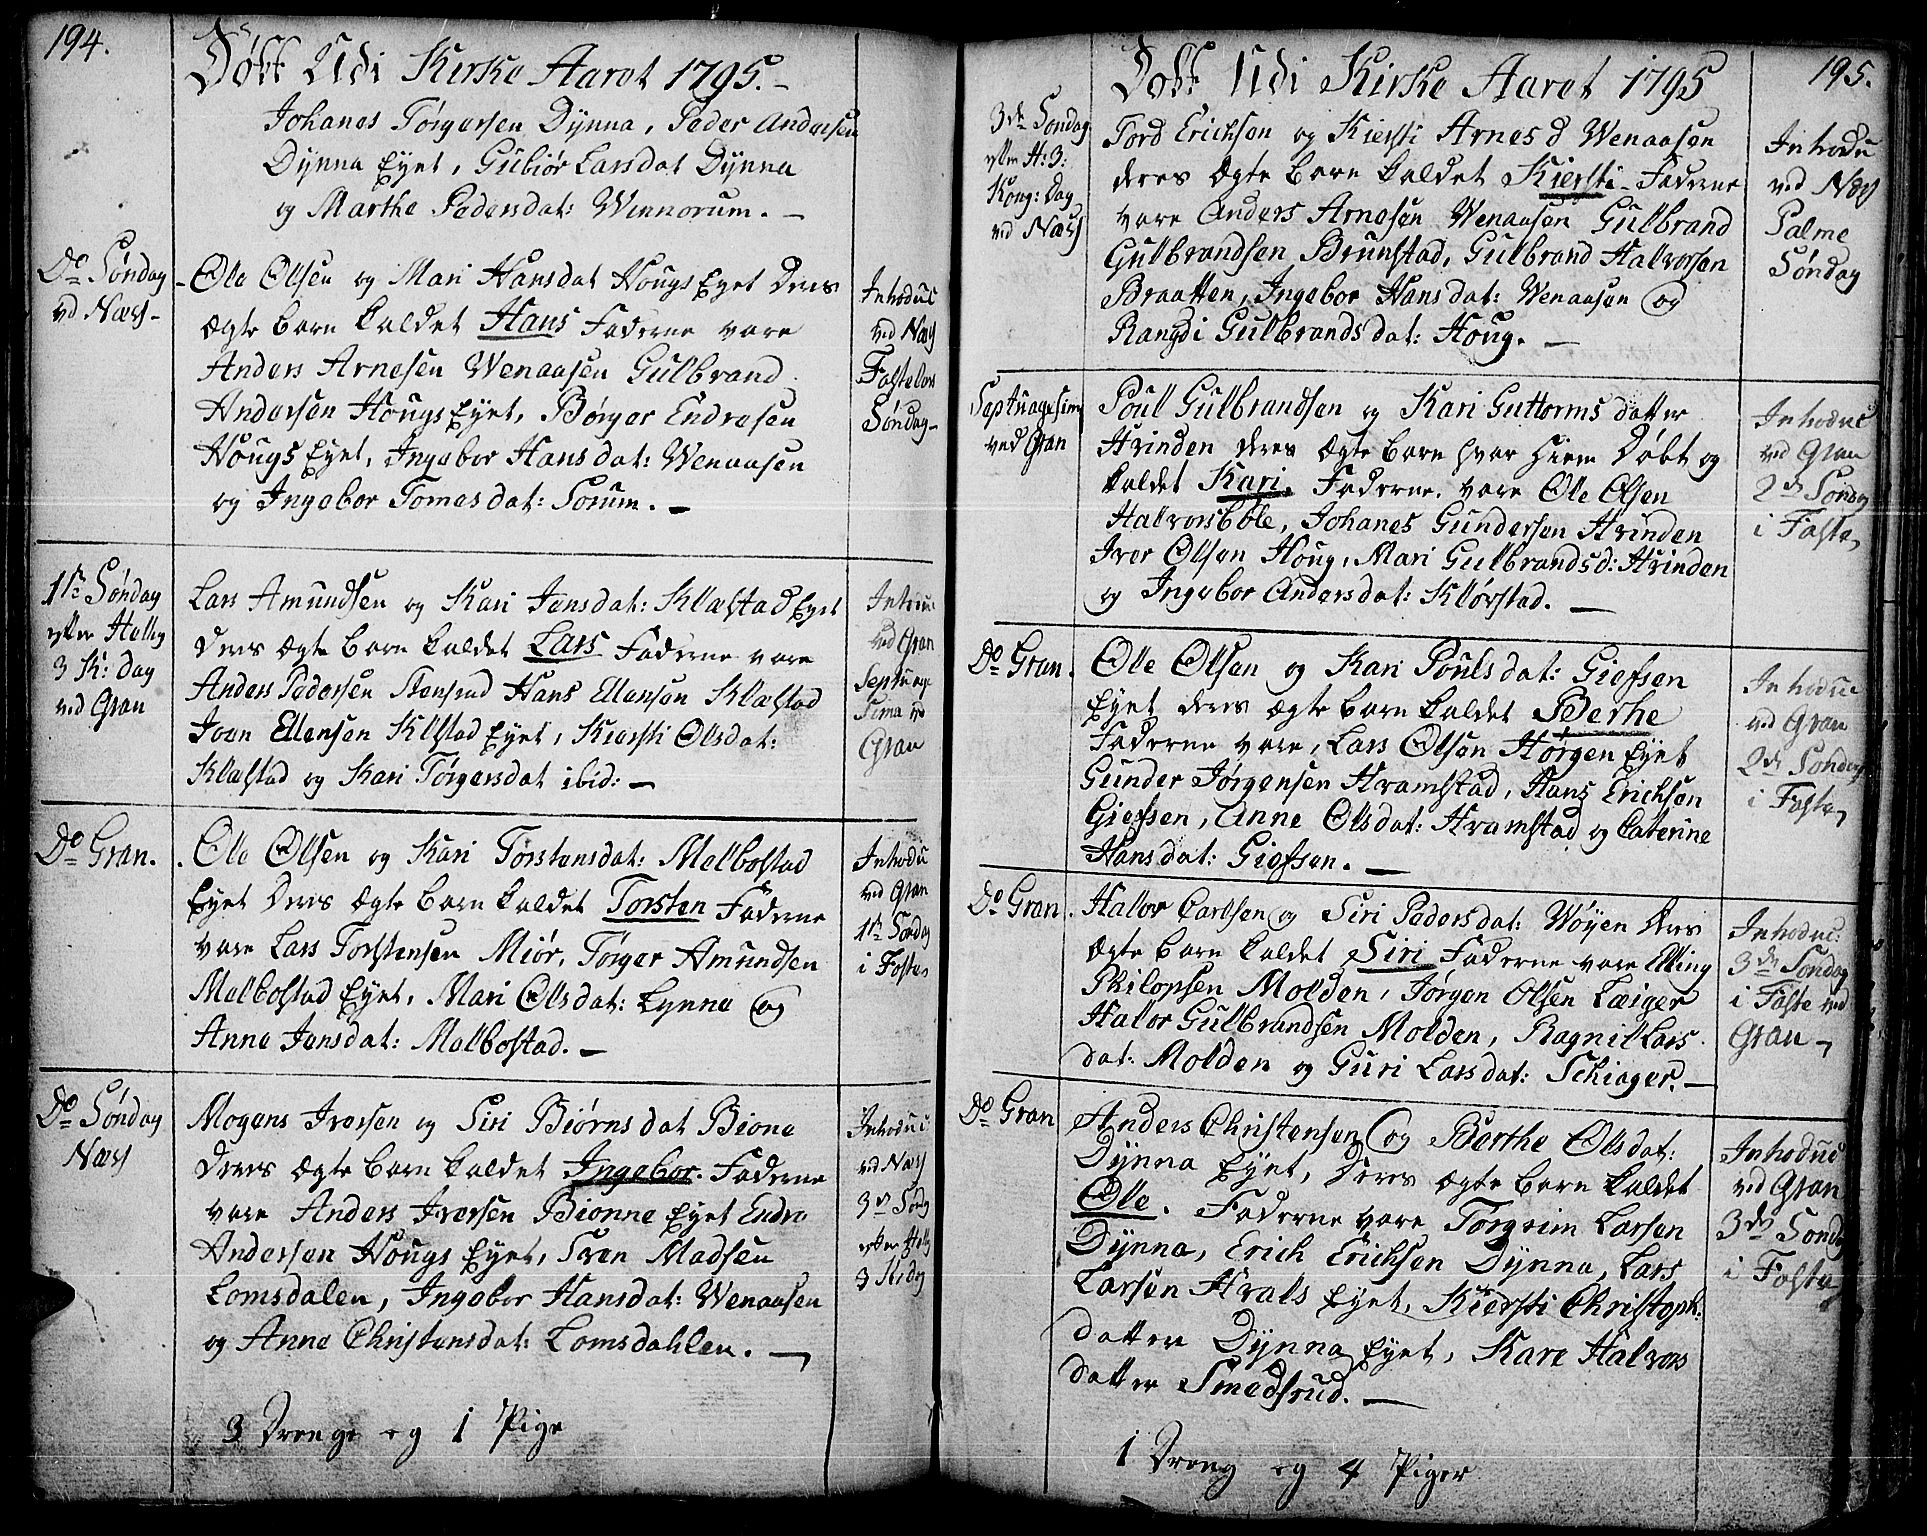 194.
Døbt Udi Kirke Aaret 1795.-
Johanes Törgersen Dÿnna, Peder Andersen
Dÿnna Eyet, Gubiör Larsdat Dÿnna
og Marthe Pedersdat: Winnorum.-
Do Søndag
vd Næss-
Ole Olsen og Mari Hansdat Hougs Eyet Deris
Ægte barn kaldet Hans Faderne vare
Anders Arnesen Wenaasen Gulbrand
Andersen Hougs Eyet, Börger Endresen
Hougs Eyet, Ingebor Hansdat: Wenaasen
og Ingebor Tomesdat: Sorum.-
Introduc
ved Næss
Fastelavns
Søndag-
1ste Søndag
efter Hellig
3 K: Dag
ved Gran
Lars Amundsen og Kari Jensdat: Klæstad Eyet
Deris Ægte barn kaldet Lars Faderne vare
Anders Pedersen Stensrud Hans Ellensen Klæstad
Joen Ellensen Klstad Eyet, Kiersti Olsdat:
Klæstad og Kari Törgersdat ibid:-
Introduc
ved Gran
Septuage
Sima ve
Gran
Do Gran.
Ole Olsen og Kari Torstensdat: Melbostad
Eyet Deris Ægte barn kaldet Torsten Faderne
vare Lars Torstensen Miör, Törger Amundsen
Melbostad Eyet, Mari Olsdat: Lynne og
Anne Jensdat: Melbostad.-
Introdu
ved Gran
1ste Søndag
i Faste
Do Søndag
Næss
Mogens Iversen og Siri Biörnsdat Bione
Deris Ægte barn kaldet Ingebor. Faderne
vare Anders Iversen Bionne Eyet Endre
Andersen Hougs Eyet, Sven Madsen
Lomsdalen, Ingebor Hansdat: Wenaasen
og Anne Christensdat: Lomsdahlen.-
Introduc
ved Næss
3de Sødg
efter Hellg
3 Kodg
3 Drenge og 1 Pige
195.
Døbt Udi Kirke Aaret 1795
3de Søndag
efter H: 3:
Kong: Dag
ved Næss
Tord Erichsen og Kiersti Arnes D Wenaasen
deres Ægte barn kaldet Kiersti- Faderne
vare Anders Arnesen Wenaasen Gulbrand
Gulbrandsen Brunstad, Gulbrand Halvorsen
Braatten, Ingebor Hansdat: Wenaasen og
Rangdi Gulbrandsdat: Houg.-
Introdu
ved Næss
Palme
Søndag
Septuagesim
ved Gran
Poul Gulbrandsen og Kari Guttormsdatter
Hvinden deres Ægte barn hver Hiem Døbt og
kaldet Kari. Faderne vare Ole Olsen
Halvorsböle, Johanes Gundersen Hvinden
Iver Olsen Houg, Mari Gulbrandsd: Hvinden
og Ingebor Andersdat: Klörstad.-
Introduc
ved Gran
2de Søndag
i Faste
Do Gran.
Ole Olsen og Kari Poulsdat: Giefsen
Eyet deres Ægte barn kaldet Berhe
Faderne vare, Lars Olsen Hörgen Eyet
Gunder Jörgensen Hramstad, Hans Erichsen
Giefsen, Anne Olsdat: Hramstad og Caterine
Hansdat: Giefsen.-
Introduc
ved Gran
2de Søndag
i Faste
Do Gran.
Halvor Carlsen og Siri Pedersdat: Wöyen Deris
Ægte barn kaldet Siri Faderne vare Elling
Philopsen Molden, Jörgen Olsen Læiger
Halvor Gulbrandsen Molden, Ragnil Lars
dat: Molden og Guri Larsdat: Schiager.-
Introduc:
3de Søndag
i Faste ved
Gran-
Do Gran
Anders Christensen og Berthe Olsdat:
Dÿnna Eyet, Deres Ægte barn kaldet
Ole. Faderne vare Torgrim Larsen
Dÿnna, Erich Erichsen Dÿnna, Lars
Larsen Hvals Eyet, Kiersti Christoph:
datter Dÿnna Eyet, Kare Halvors
datter Smedsrud.-
Introduc
ved Gran
3de Søndag
i Faste
1 Dreng og 4 Piger